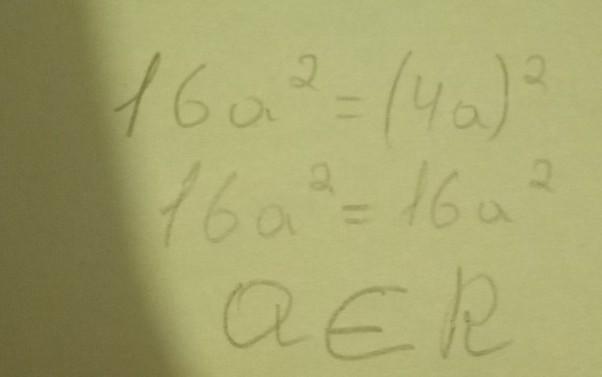 16a² = (4a)²
16a² = 16a²
a ∈ R